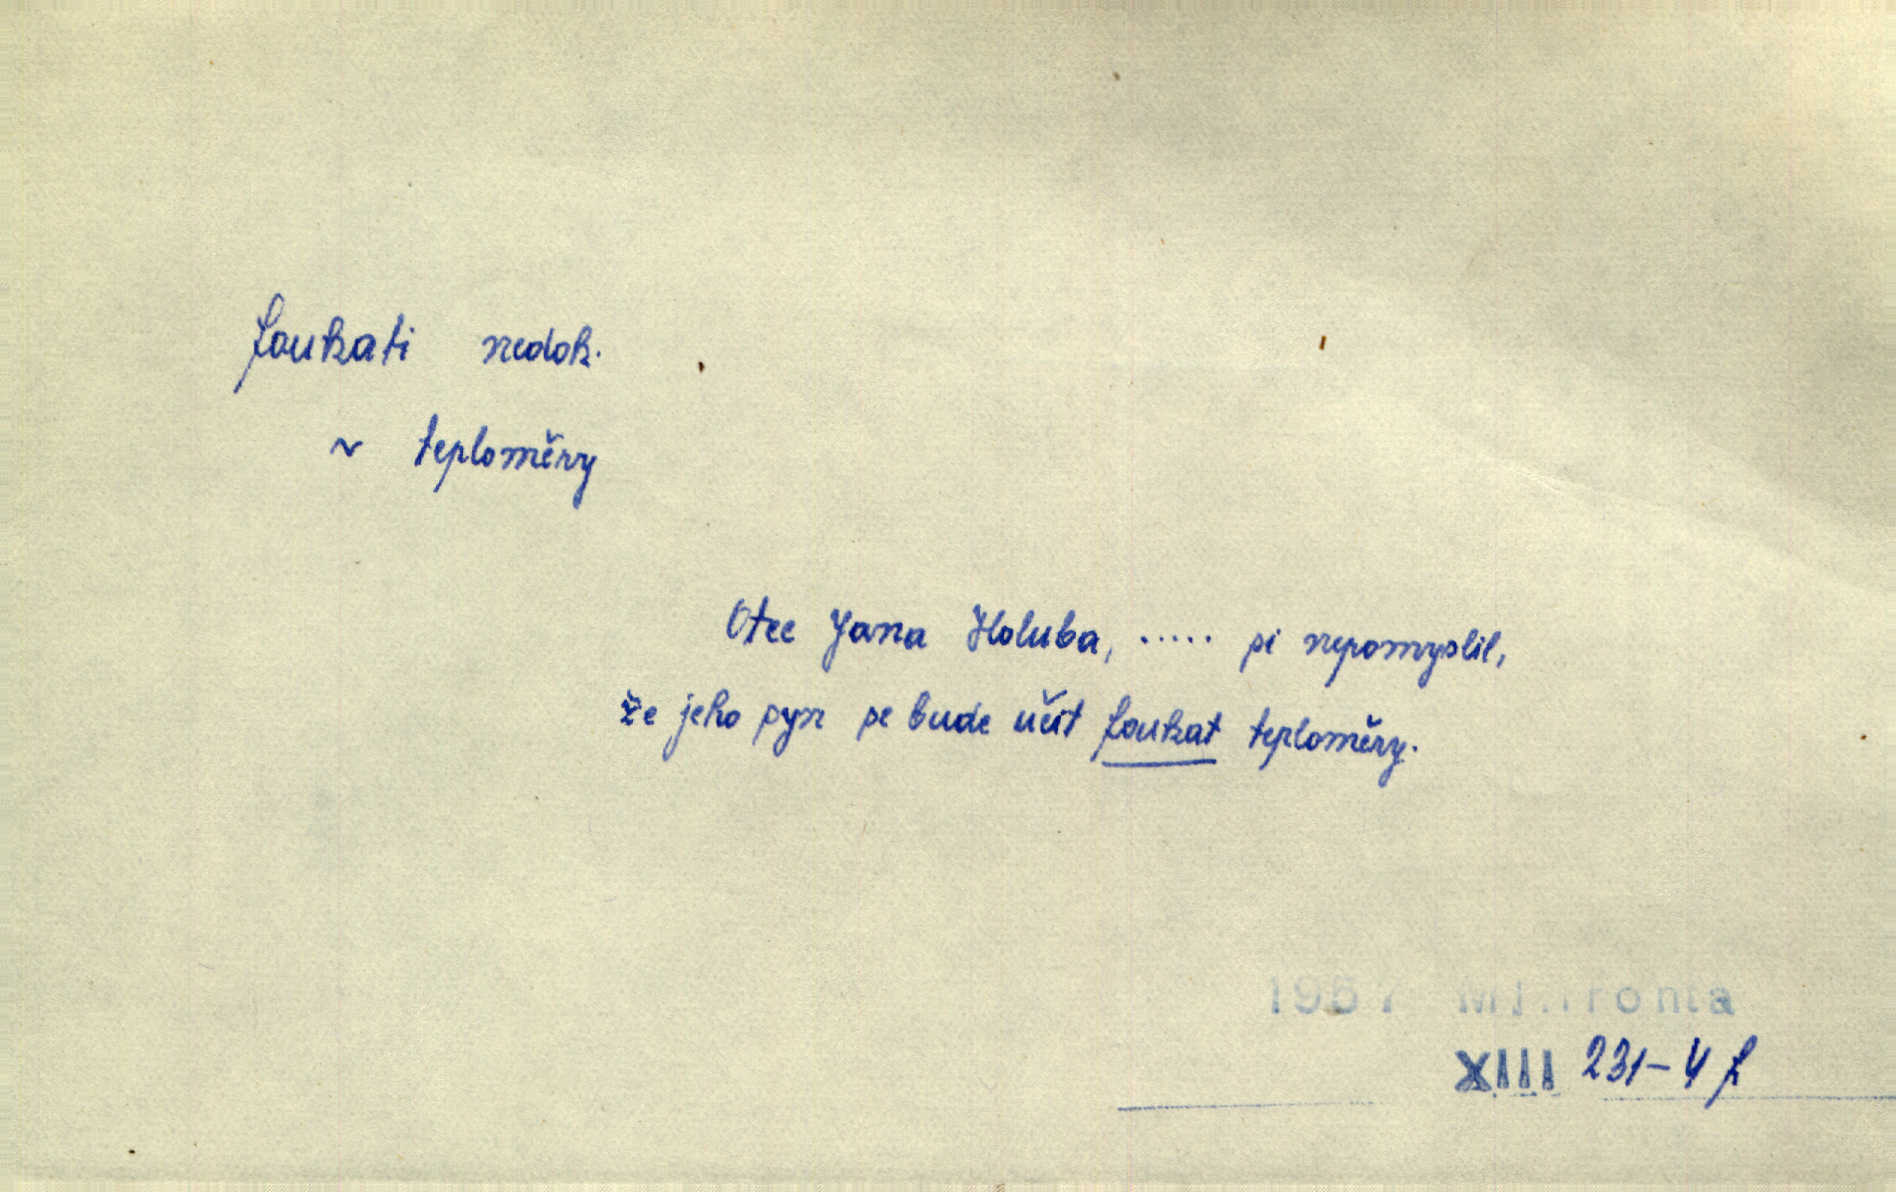 foukati nedok.
~ teploměry
Otec Jana Holuba, ..... si nepomyslil,
že jeho syn se bude učit foukat teploměry.
1957 Ml.fronta
XIII 231-4 f